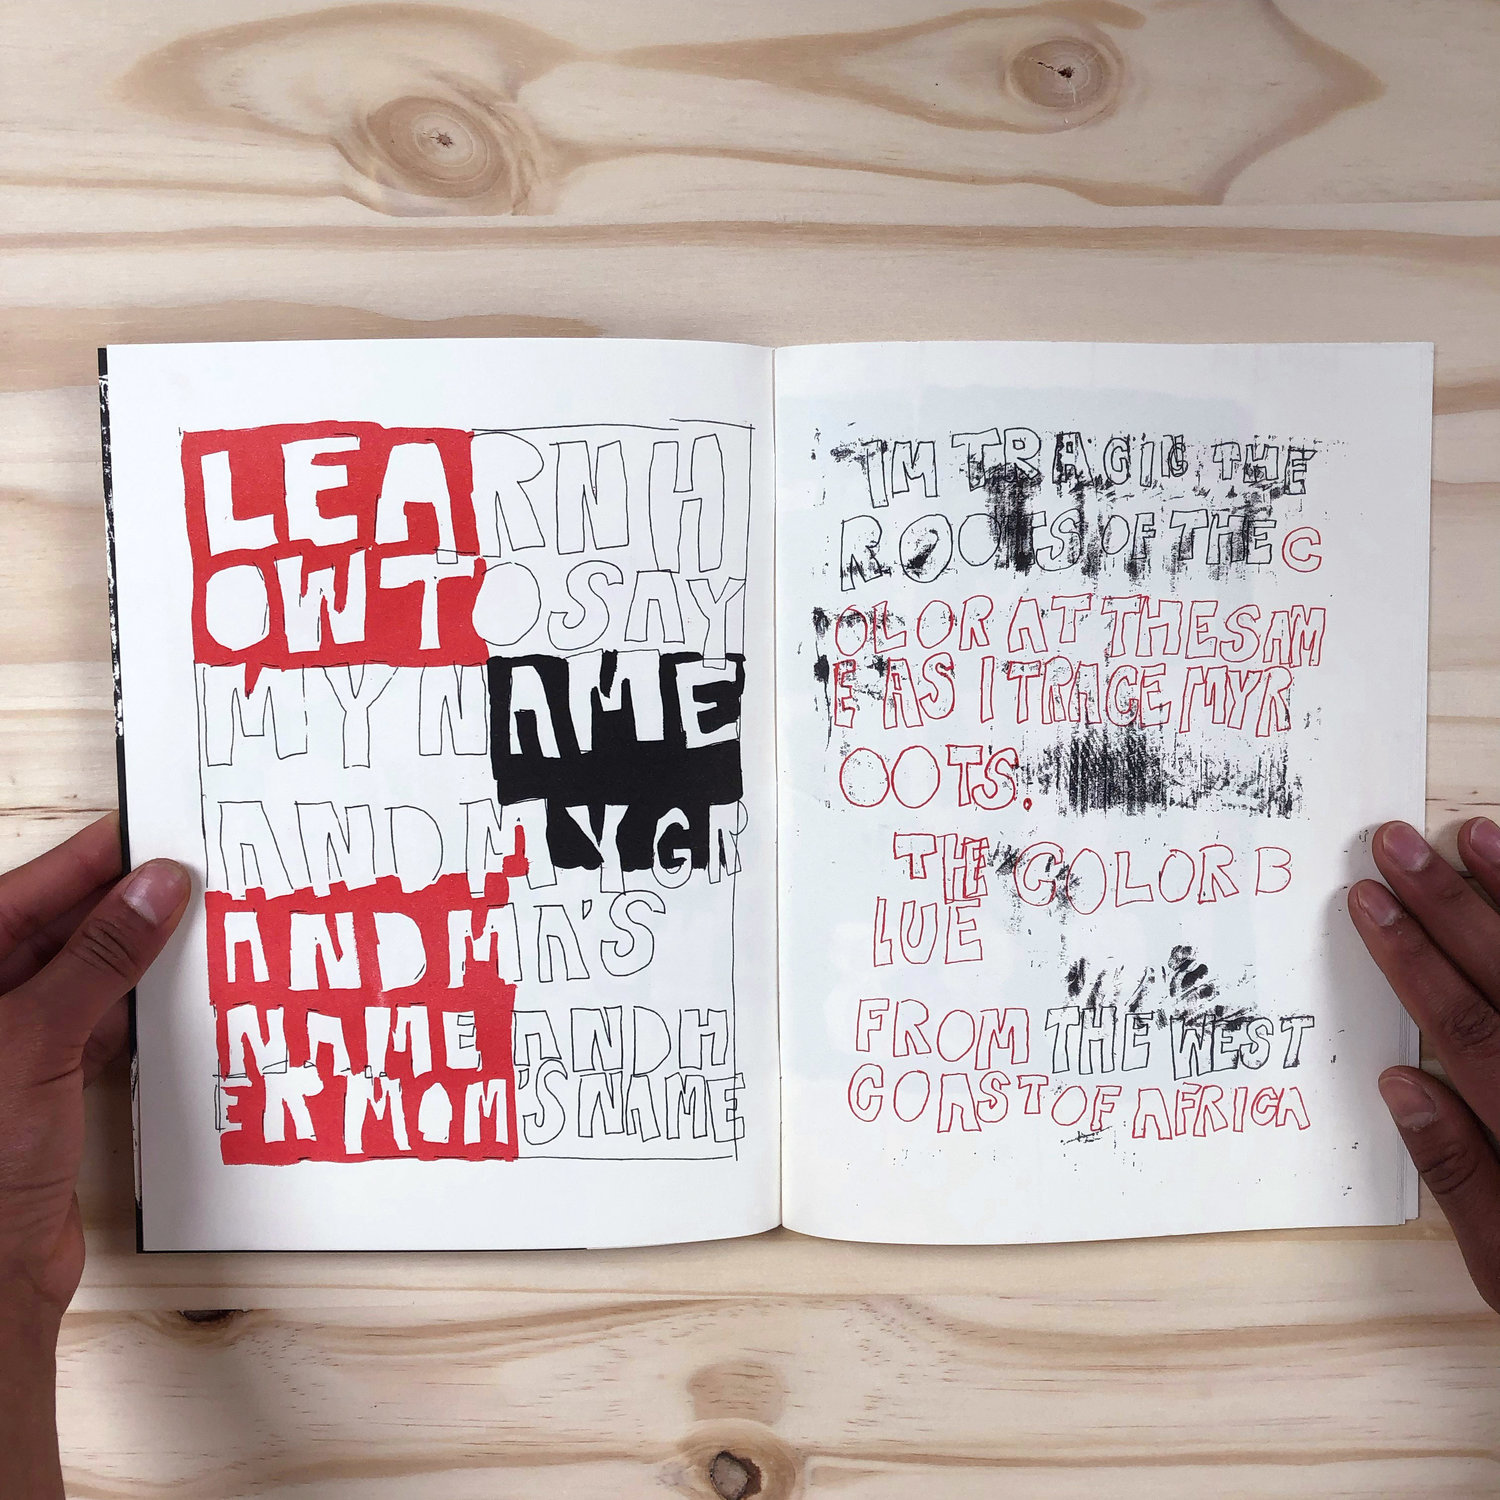 LEARNH
OWTOSAY
MYNAME
ANDMYGR
ANDMA'S
NAMEANDH
ERMOM'SNAME
IM TRACING THE
ROOTS OF THE C
OLOR AT THE SAM
E AS I TRACE MY R
OOTS.
THE COLOR B
LUE
FROM THE WEST
COAST OF AFRICA